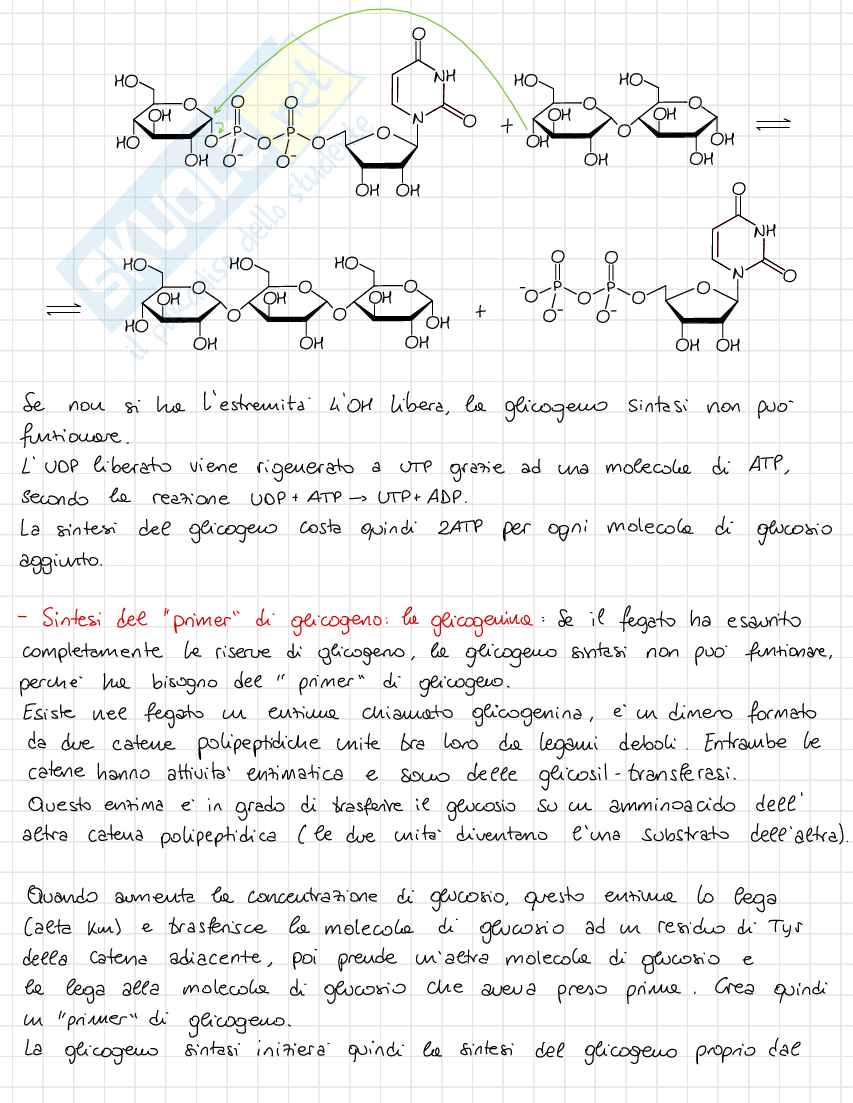 Se non si ha l'estremità 4'OH libera, la glicogeno sintasi non può
funzionare.
L'UDP liberato viene rigenerato a UTP grazie ad una molecola di ATP,
secondo la reazione UDP + ATP → UTP + ADP.
La sintesi del glicogeno costa quindi 2ATP per ogni molecola di glucosio
aggiunto.
- Sintesi del "primer" di glicogeno: la glicogenina: Se il fegato ha esaurito
completamente le riserve di glicogeno, la glicogeno sintasi non può funzionare,
perché ha bisogno del "primer" di glicogeno.
Esiste nel fegato un enzima chiamato glicogenina, è un dimero formato
da due catene polipeptidiche unite tra loro da legami deboli. Entrambe le
catene hanno attività enzimatica e sono delle glicosil-transferasi.
Questo enzima è in grado di trasferire il glucosio su un amminoacido dell'
altra catena polipeptidica (le due unità diventano l'una substrato dell'altra).
Quando aumenta la concentrazione di glucosio, questo enzima lo lega
(alta Km) e trasferisce la molecola di glucosio ad un residuo di Tyr
della catena adiacente, poi prende un'altra molecola di glucosio e
la lega alla molecola di glucosio che aveva preso prima. Crea quindi
un "primer" di glicogeno.
La glicogeno sintasi inizierà quindi la sintesi del glicogeno proprio dal